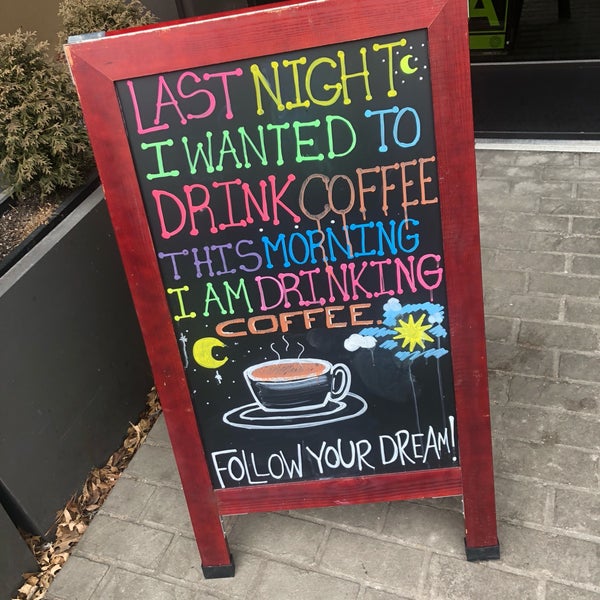 LAST NIGHT
I WANTED TO
DRINK COFFEE...
THIS MORNING
I AM DRINKING
COFFEE.
FOLLOW YOUR DREAM!
A